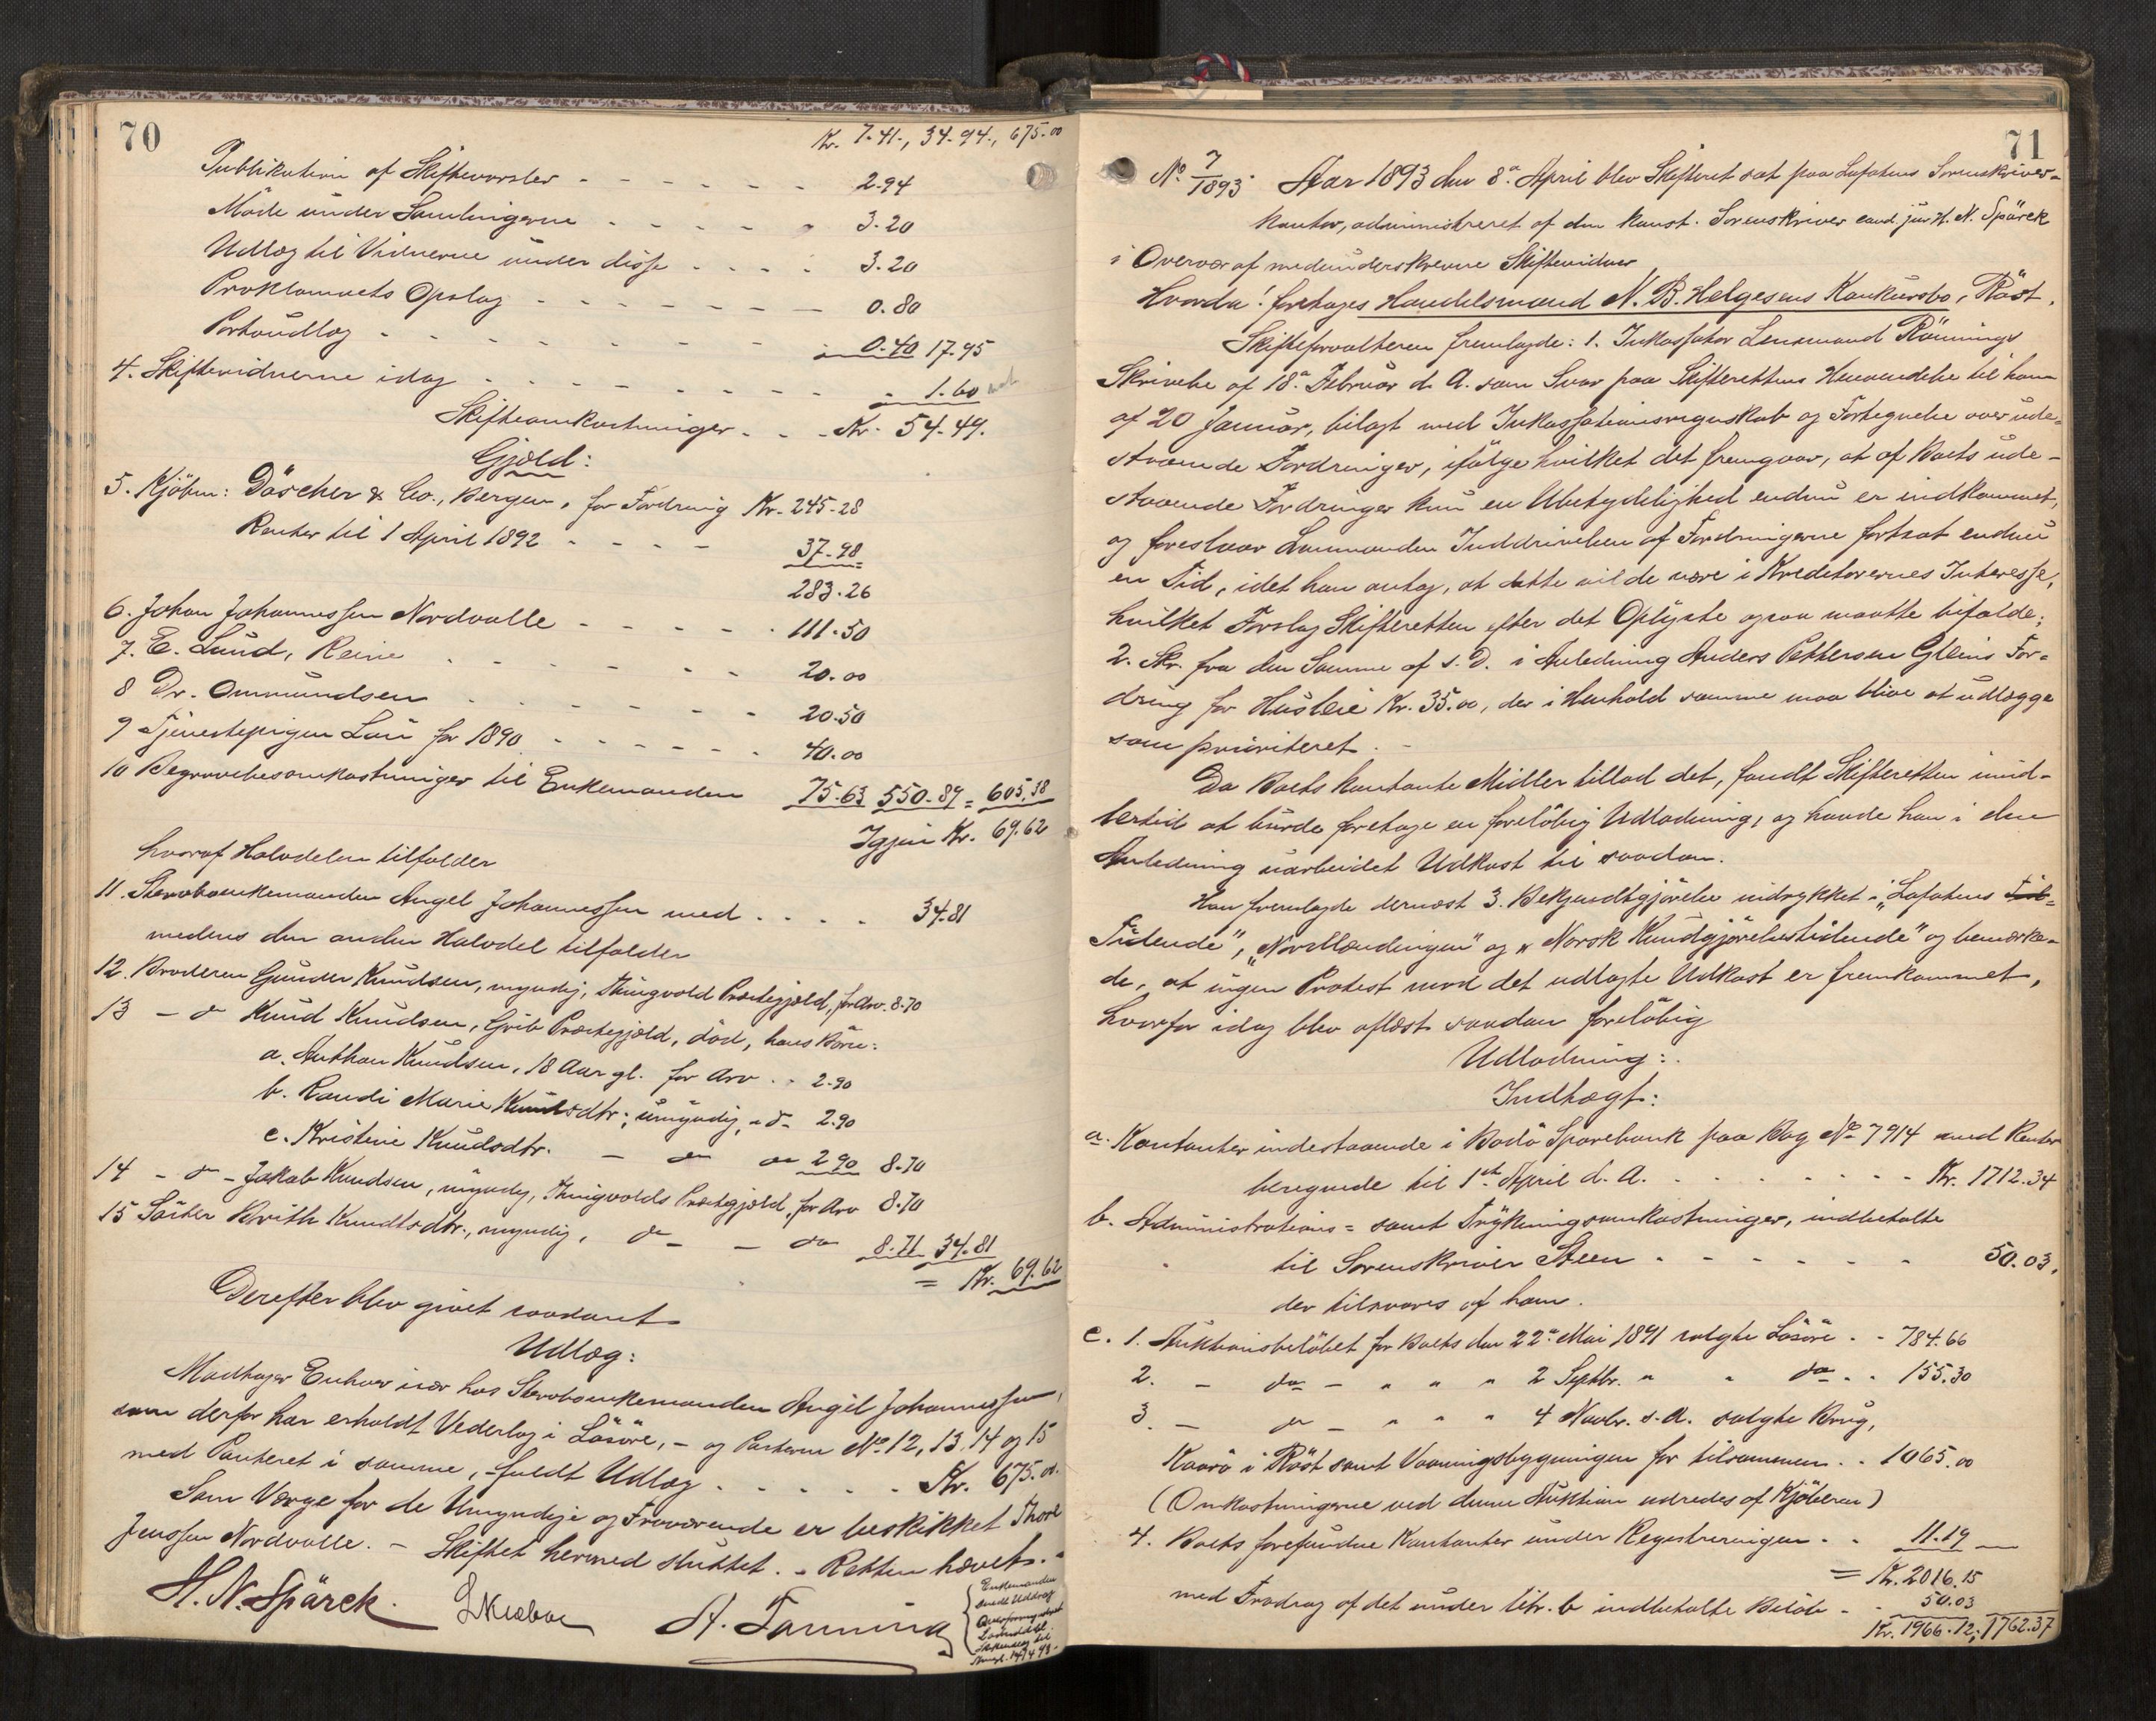 70
Kr. 7.41., 34.94., 675.00
Publikation af Skiftevarsler - - - - - - 2.94
Møde under Samlingerne - - - - - 3.20
Udlæg til Vidnerne under disse - - - - 3.20
Proklamaets Opslag - - - - - - - 0.80
Portoudlæg - - - - - - - - 0.40 17.95
4. Skiftevidnerne idag - - - - - - - - 1.60
Skifteomkostninger - - - Kr. 54.49.
Gjæld:
5. Kjöbm: Däscher & Co., Bergen, for Fordring Kr. 245.28
Renter til 1 April 1892 - - - - 37.98
283.26
6. Johan Johannessen Nordvalle - - - - - 111.50
7. E. Lund, Reine - - - - - - - 20.00
8 Dr. Ommundsen - - - - - - 20.50
9 Tjenestepigen Lau for 1890 - - - - - - 40.00
10 Begravelsesomkostninger til Enkemanden 75.63 550.89 = 605.38
Igjen Kr. 69.62
hvoraf Halvdelen tilfalder
11. Stervboenkemanden Angel Johannessen med . . . . 34.81
medens den anden Halvdel tilfalder
12. Broderen Gunder Knudsen, myndig, Thingvold Præstegjæld, for Arv. 8.70
13 - do Knud Knudsen, Grib Præstegjæld, död, hans Börn:
a. Anthon Knudsen, 18 Aar gl. for Arv . . 2.90
b. Randi Marie Knudsdtr., umyndig, - do - 2.90
c. Kristine Knudsdtr. - do do 2.90 8.70
14 - do - Jakob Knudsen, myndig, Thingvolds Præstegjæld, for Arv 8.70
15 Søster Brith Knudtsdtr., myndig, do - - do 8.71 34.81
= Kr. 69.62
Derefter blev givet saadant
Udlæg:
Modtager Enhver især hos Stervboenkemanden Angel Johannessen,
som derfor har erholdt Vederlag i Lösöre, - og Parterne No. 12, 13, 14 og 15
med Panteret i samme, - fuldt Udlæg . . . . . . Kr. 675.00.
Som Værge for de Umyndige og Fraværende er beskikket Thore
Jenssen Nordvalle. - Skiftet hermed sluttet. - Retten hævet.
H. N. Spärck. A. Fanning
Enkemanden
sendt Uddrag
71
No. 7/1893. Aar 1893 den 8de April blev Skifteret sat paa Lofotens Sorenskriver-
kontor, administreret af den konst. Sorenskriver cand. jur H. N. Spärck
i Overvær af medunderskrevne Skiftevidner
Hvorda! foretoges Handelsmand N. B. Helgesens Konkursbo, Röst.
Skifteforvalteren fremlagde: 1. Inkassator Lensmand Rönnings
Skrivelse af 18de Februar d. A. som Svar paa Skifterettens Henvendelse til ham
af 20 Januar, bilagt med Inkassationsregnskab og Fortegnelse over ude-
staaende Fordringer, ifölge hvilket det fremgaar, at af Boets ude-
staaende Fordringer kun en Ubetydelighed endnu er indkommet,
og foreslaar Lensmanden Inddrivelsen af Fordringerne fortsat endnu
en Tid, idet han antog, at dette vilde være i Kreditorernes Interesse,
hvilket Forslag Skifteretten efter det Oplyste ogsaa maatte bifalde;
2. Skr. fra den Samme af s. D. i Anledning Anders Pettersen Gleins For-
dring for Husleie Kr. 35.00, der i Henhold samme maa blive at udlægge
som prioriteret. -
Da Boets kontante Midler tillod det, fandt Skifteretten imid-
lertid at burde foretage en foreløbig Udlodning, og havde han i den
Anledning uarbeidet Udkast til saadan.
Han fremlagde dernæst 3. Bekjendtgjörelse indrykket i „Lofotens Tid-
Tidende", „Nordlændingen" og „Norsk Kundgjörelsestidende" og bemærke-
de, at ingen Protest mod det udlagte Udkast er fremkommet,
hvorfor idag blev oflæst saadan forelöbig
Udlodning:
Indtægt:
a. Kontanter indestaaende i Bodö Sparebank paa Bog No 7914 med Renter
beregnede til 1ste April d. A. . . . . . . . - Kr. 1712.34
b. Administrations= samt Trykningsomkostninger, indbetalte
til Sorenskriver Steen - - - - - - 50.03.
der tilsvares af ham.
c. 1. Auktionsbelöbet for Boets den 22de Mai 1891 solgte Lösöre . - 784.66
2. - do - " " " 2 Septbr. " " do . . 155.30
3. - do - " " " 4 Novbr. s. A. solgte Brug,
Kaarö i Röst samt Vaaningsbygningen for tilsammen . . 1065.00
(Omkostningerne ved denne Auktion udredes af Kjöberen)
4. Boets forefundne Kontanter under Registreringen . . 11.19
= Kr. 2016.15
med Fradrag af det under litr. b indbetalte Belöb - - 50.03
Kr. 1966.12; 1762.37